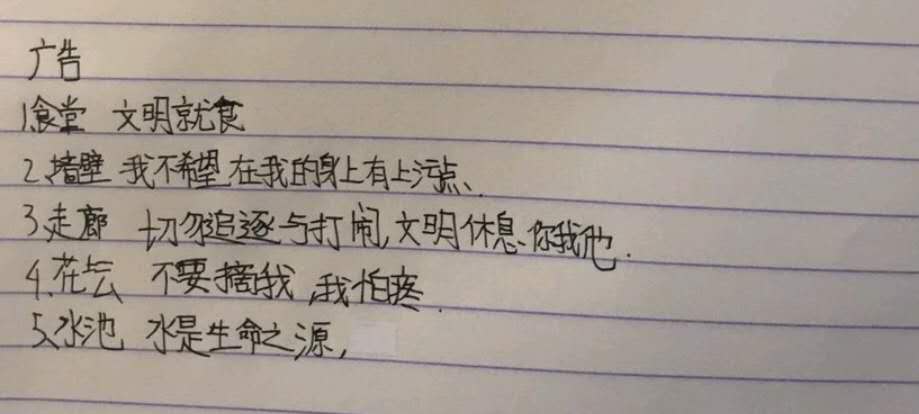 广告
1.食堂 文明就食
2、墙壁 我不希望在我的身上有上污点、
3、走廊 切勿追逐与打闹,文明休息、你我他.
4、花坛 不要摘我,我怕疼.
5、水池 水是生命之源,